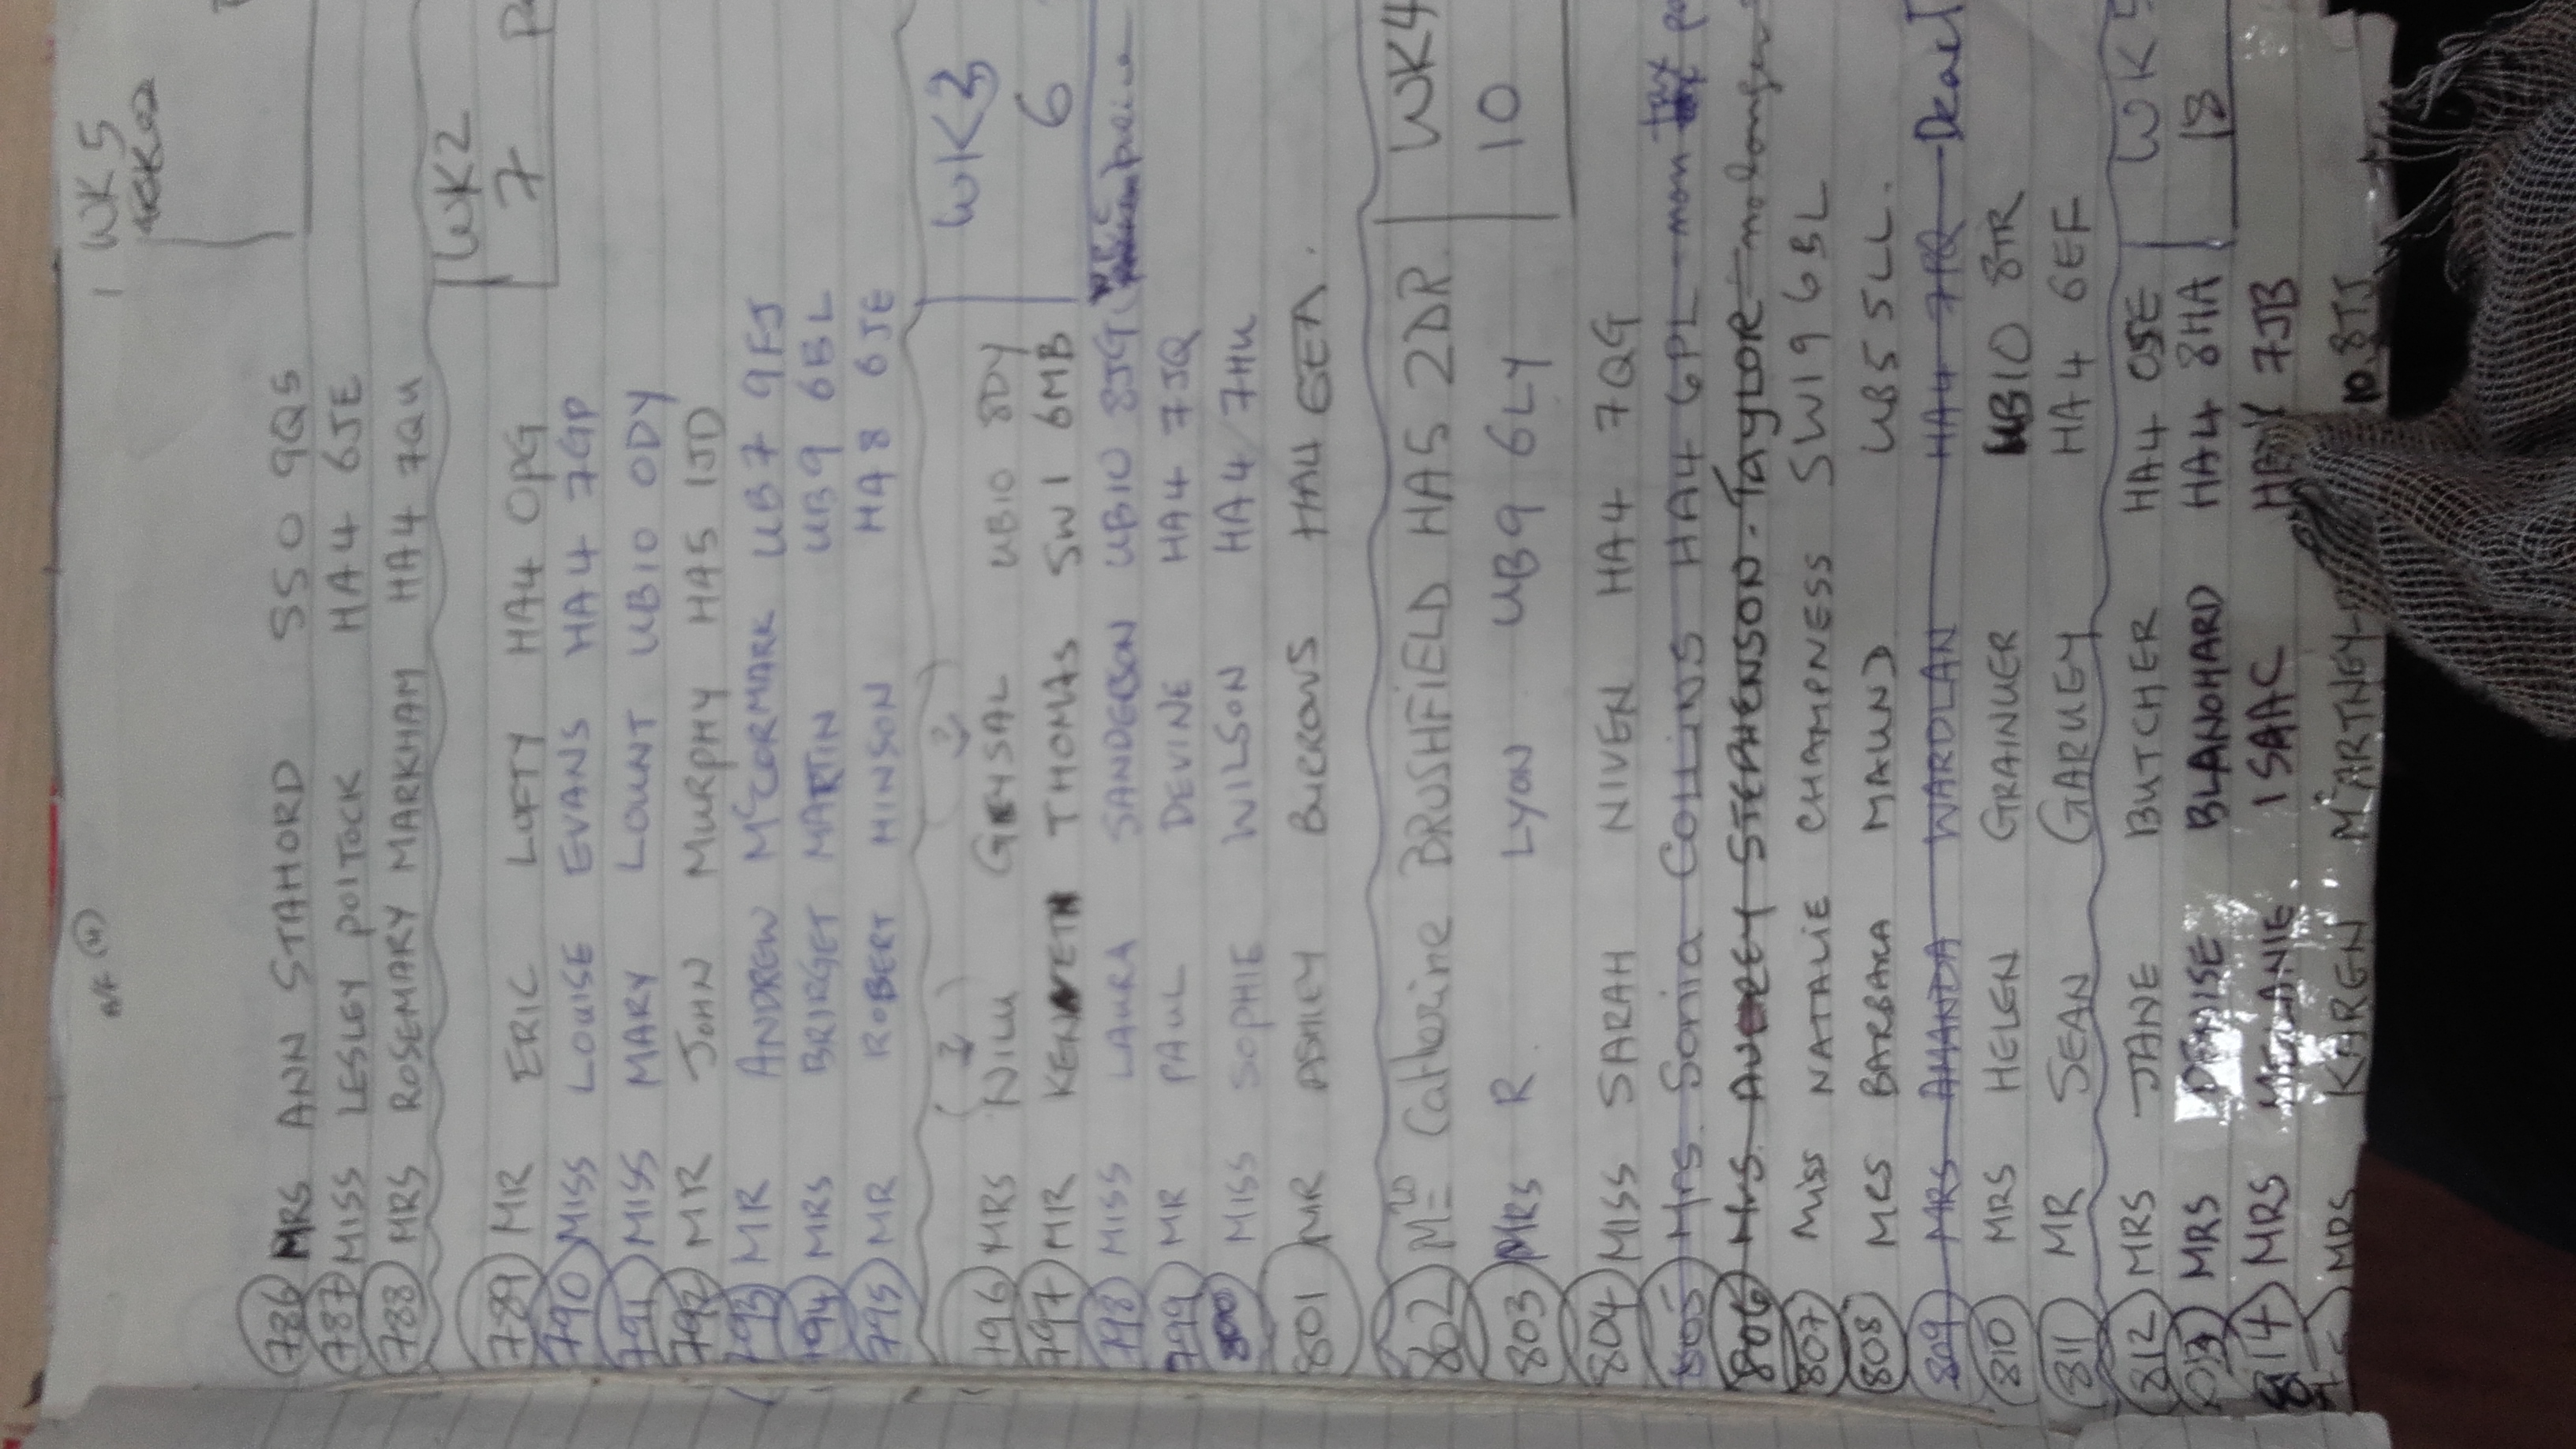 WK 5
786 MRS ANN STAHORD SS0 9QS
787 MISS LESLEY POITOCK HA4 6JE
788 MRS ROSEMARY MARKHAM HA4 7QU
WK2
789 MR ERIC LOFTY HA4 0PG 7
790 MISS LOUISE EVANS HA4 7GP
791 MISS MARY LOUNT UB10 0DY
792 MR JOHN MURPHY HA5 1JD
793 MR ANDREW McCORMARK UB7 9FJ
794 MRS BRIRGET MARTIN UB9 6BL
795 MR ROBERT HINSON HA8 6JE
(?) (?) WK3
796 MRS NILU GEYSAL UB10 8DY
797 MR KENNETH THOMAS SW1 6MB 6
798 MISS LAURA SANDERSON UB10 8JG
799 MR PAUL DEVINE HA4 7JQ
800 MISS SOPHIE WILSON HA4 7HU
801 MR ASHLEY BURROWS HA4 6EA.
802 Catherine BRUSHFIELD HA5 2DR WK4
803 MRS R. LYON UB9 6LY 10
804 MISS SARAH NIVEN HA4 7QG
805 Mrs. Sonia COLLINS HA4 6PL - non tax
806 Mrs. AUDREY STEPHENSON-TAYLOR - no longer
807 Miss NATALIE CHAMPNESS SW19 6BL
808 MRS BARBARA MAUND UB5 5LL.
809 MRS AMANDA WARDLAN HA4 7PQ -
810 MRS HELEN GRAINUER UB10 8TR
811 MR SEAN GARUEY HA4 6EF
812 MRS JANE BUTCHER HA4 0SE WK 5
813 MRS DENISE BLANOHARD HA4 8HA 18
814 MRS MELANIE ISAAC 7JB
MRS KAREN McARTNEY- 10 8TJ